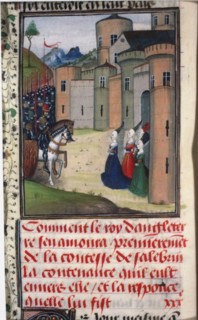 Comment le roy dangleter
re senamoura premierement
de la contesse de salebrin
la contenance quil eust
enuers elle / et la responce
quelle lui fist xxx